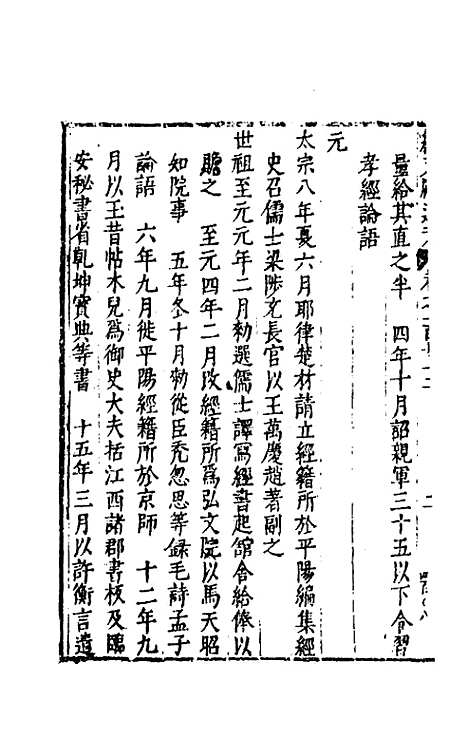 量給其直之半　四年十月詔親軍三十五以下令習
孝經論語
元
太宗八年夏六月耶律楚材請立經籍所於平陽編集經
史召儒士梁陟充長官以王萬慶趙著副之
世祖至元元年二月勑選儒士譯寫經書起館舍給俸以
贍之　至元四年二月改經籍所爲弘文院以馬天昭
知院事　五年冬十月勑從臣禿忽思等錄毛詩孟子
論語　六年九月徙平陽經籍所於京師　十二年九
月以王昔帖木兒爲御史大夫括江西諸郡書板及臨
安秘書省乾坤寶典等書　十五年三月以許衡言遣